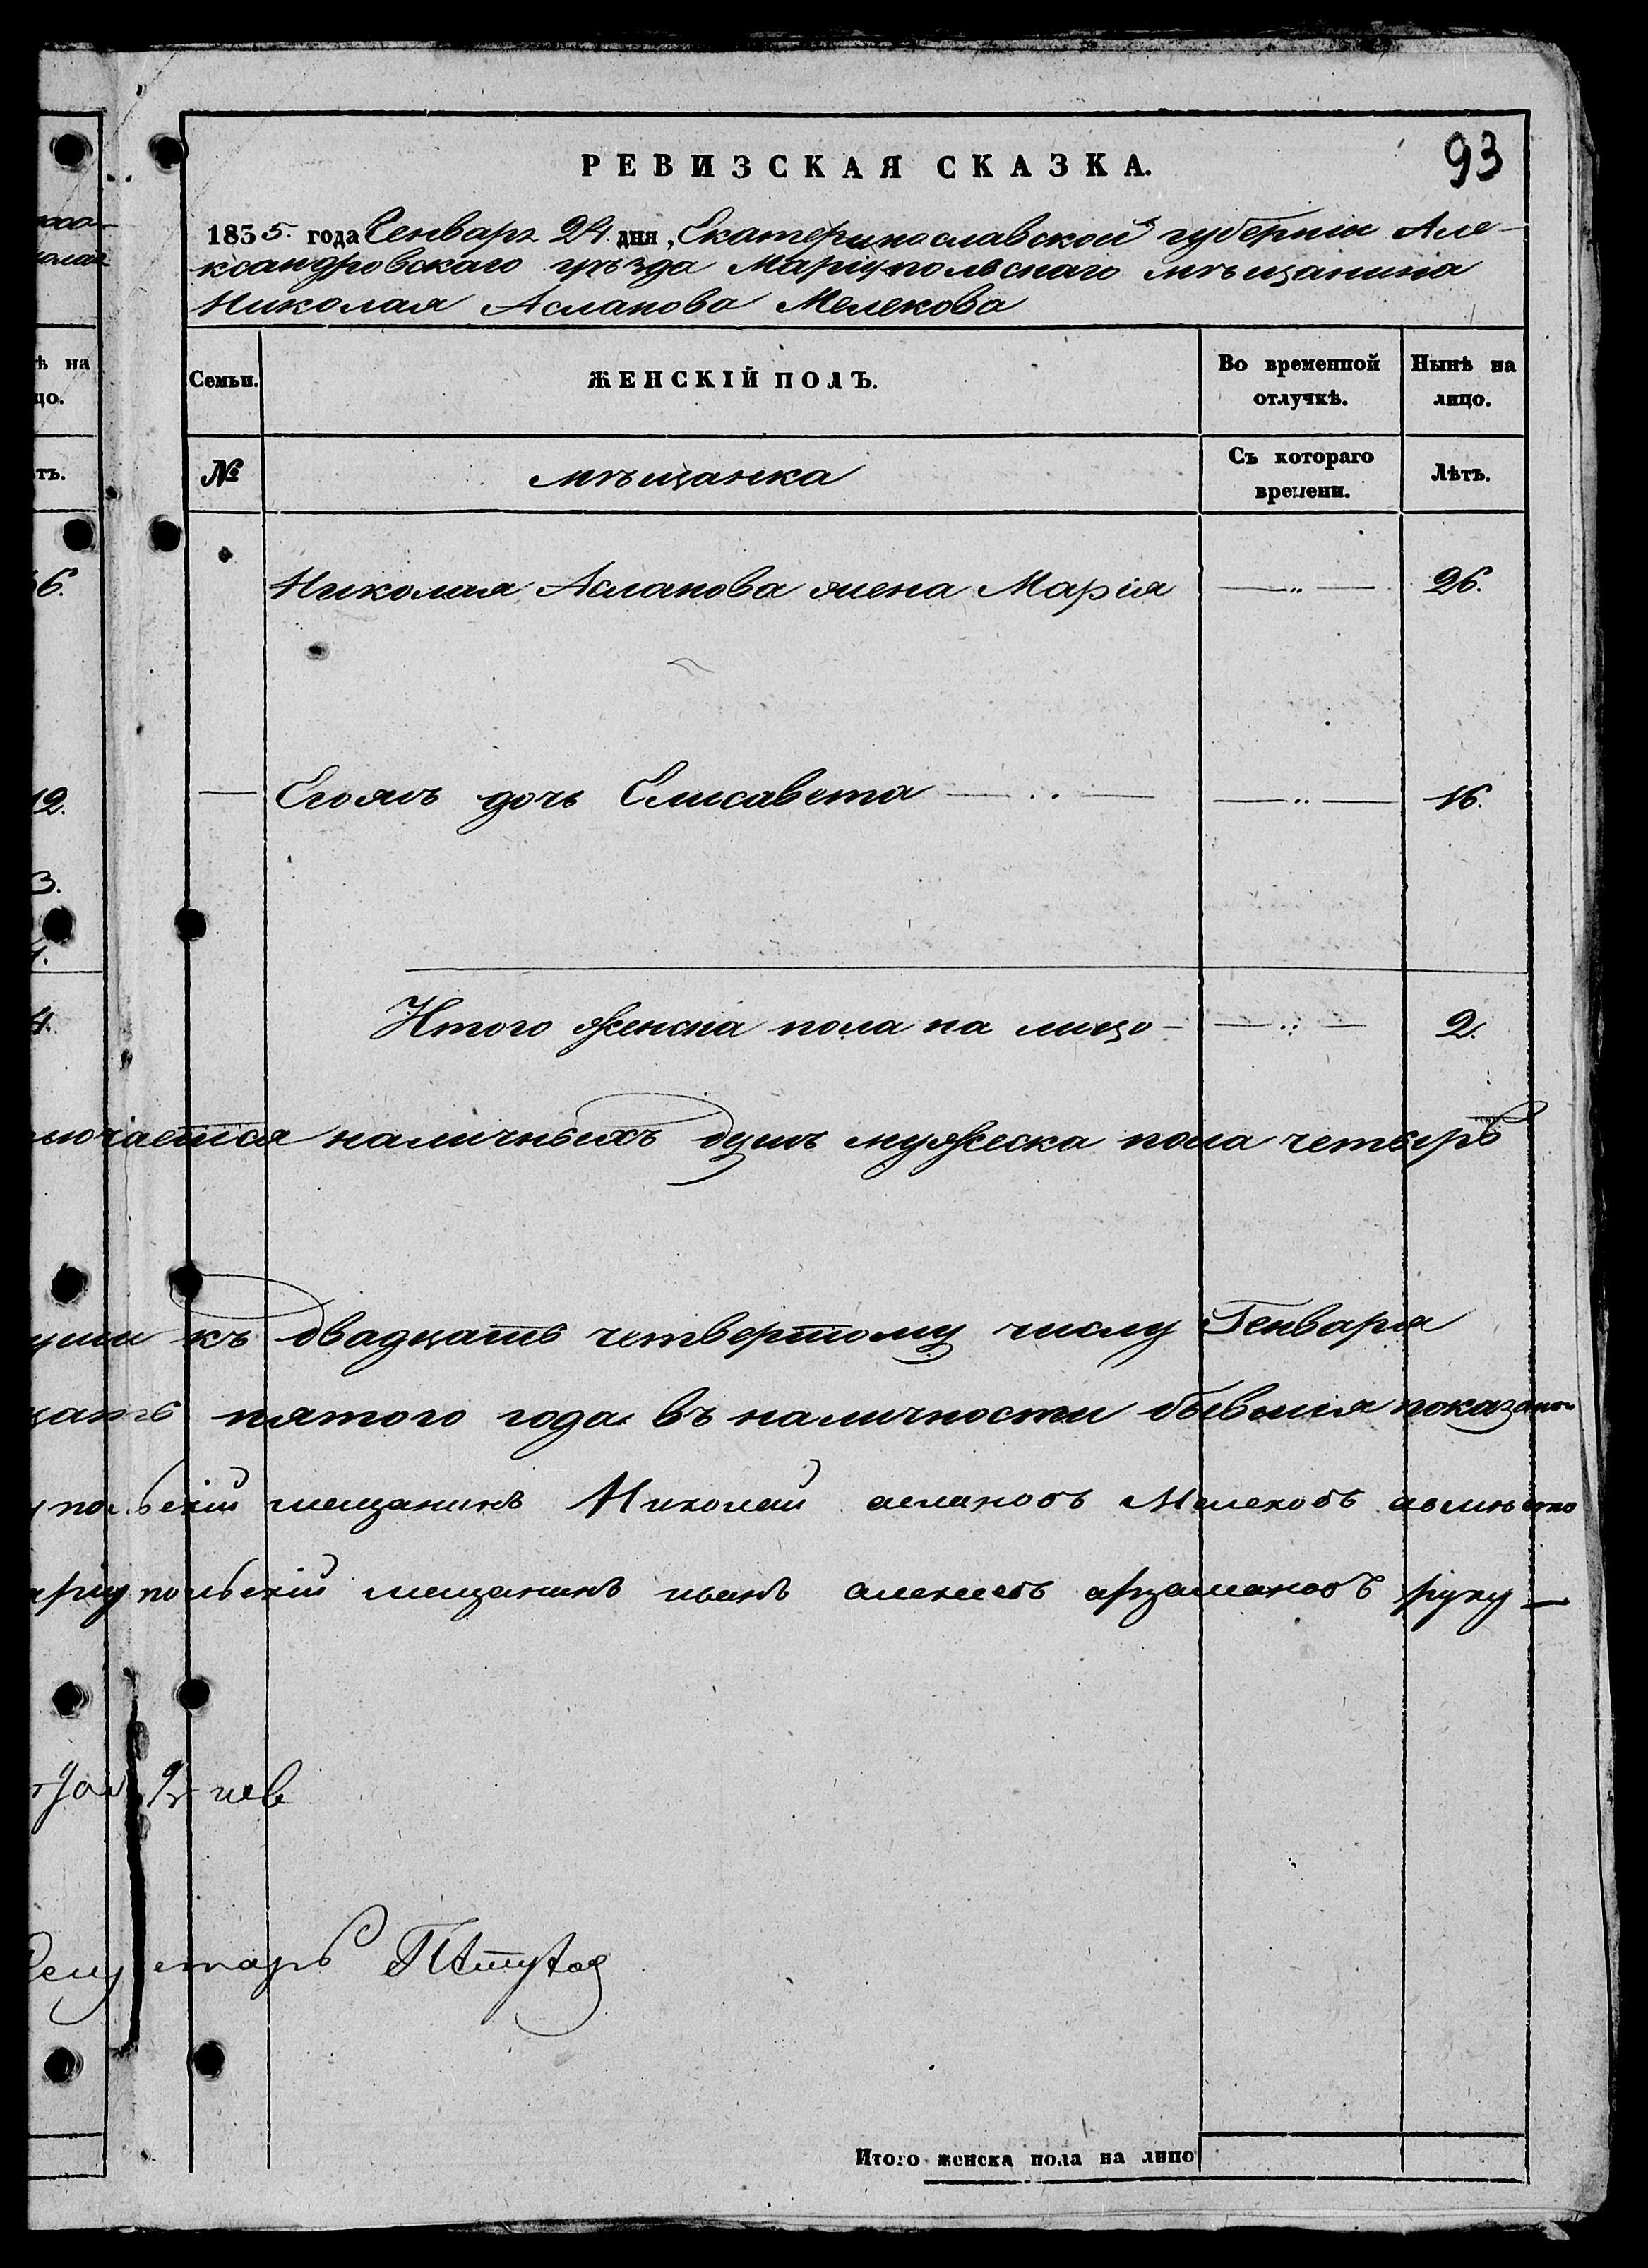 93
РЕВИЗСКАЯ СКАЗКА.
1835. года Генваря 24. дня, Екатеринославской губерніи Але-
ксандровскаго уѣзда Маріупольскаго мѣщанина
Николая Асланова Мелекова
Семьи. ЖЕНСКІЙ ПОЛЪ. Во временной отлучкѣ. Нынѣ на лицо.
№ мѣщанка Съ котораго времени. Лѣтъ.
Николая Асланова жена Марія —„— 26.
— Егожъ дочь Елисавета — . . — —„— 16.
Итого женска пола на лицо - — 2.
лючается наличныхъ душъ мужеска пола четыре
къ двадцать четвертому числу Генваря
цать пятого года въ наличности бывшія показано
упольскій мещанинъ Николай аслановъ Мелековъ авместо
аріупольскій мещанинъ иванъ алексеевъ арзамановъ руку —
Секретарь
Итого женска пола на лицо
ѣ на
цо.
тъ.
6.
12.
3.
4.
4.